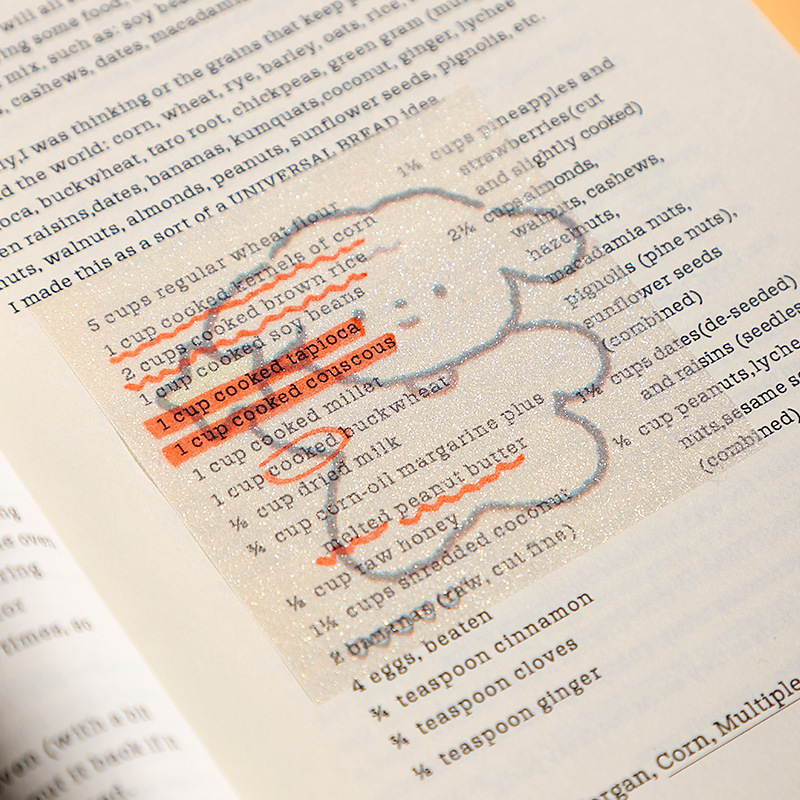 will all
ing some food,
mix, such as: soy bea
s, cashews, dates, macadamia
ly, I was thinking or the grains that keep
d the world: corn, wheat, rye, barley, oats, rice,
oca, buckwheat, taro root, chickpeas, green gram (mu
en raisins,dates, bananas, kumquats,coconut, ginger, lychee
nuts, walnuts, almonds, peanuts, sunflower seeds, pignolis, etc.
I made this as a sort of a UNIVERSAL BREAD idea.
5 cups regular wheat flour
1 cup cooked kernels of corn
2 cups cooked brown rice
1 cup cooked soy beans
1 cup cooked tapioca
1 cup cooked couscous
1 cup cooked millet
1 cup cooked buckwheat
cup dried milk
cup corn-oil margarine plus
melted peanut butter
cup raw honey
cups shredded coconut
2 bananas (raw, cut fine)
4 eggs, beaten
¾ teaspoon cinnamon
¾ teaspoon cloves
½ teaspoon ginger
cups pineapples and
strawberries(cut
and slightly cooked)
cups almonds,
walnuts, cashews,
hazelnuts,
macadamia nuts,
pignolis (pine nuts),
sunflower seeds
(combined)
cups dates(de-seeded)
and raisins (seedles
cup peanuts,lyche
nuts,sesame s
(combined)
organ, Corn, Multiple
ng
e over
ring
or
times, so
ven (with a bit
out it back if it